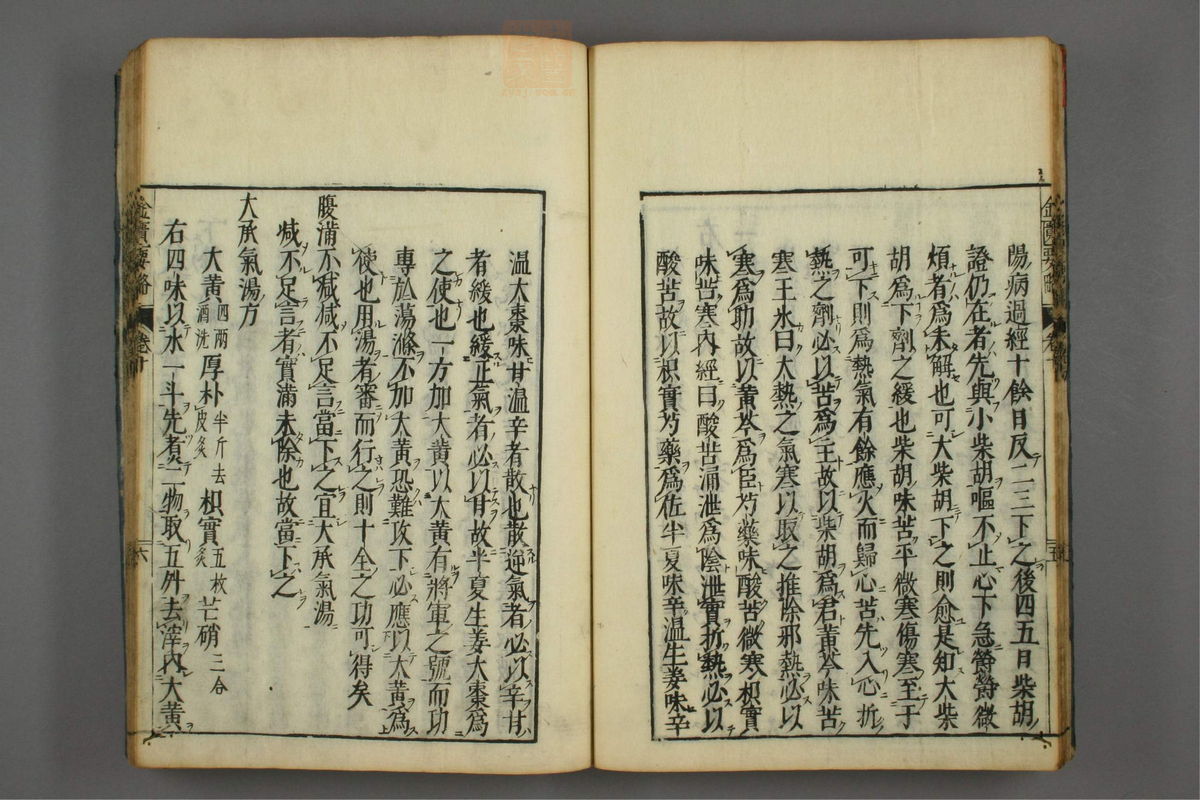 陽病過經十餘日反二三下之後四五日柴胡
證仍在者先與小柴胡嘔不止心下急鬱鬱微
煩者爲未解也可大柴胡下之則愈是知大柴
胡爲下劑之緩也柴胡味苦平微寒傷寒至于
可下則爲熱氣有餘應火而歸心苦先入心折
熱之劑必以苦爲主故以柴胡爲君黃芩味苦
寒王氷曰大熱之氣寒以取之推除邪熱必以
寒爲功故以黃芩爲臣芍藥味酸苦微寒枳實
味苦寒內經曰酸苦涌泄爲陰泄實折熱必以
酸苦故以枳實芍藥爲佐半夏味辛温生姜味辛
温大棗味甘温辛者散也散逆氣者必以辛甘
者緩也緩正氣者必以甘故半夏生姜大棗爲
之使也一方加大黃以大黃有將軍之號而功
專於蕩滌不加大黃恐難攻下必應以大黃爲
使也用湯者審而行之則十全之功可得矣
腹滿不减减不足言當下之宜大承氣湯
减不足言者實滿未除也故當下之
大承氣湯方
大黃四兩酒洗 厚朴半斤去皮炙 枳實五枚炙 芒硝三合
右四味以水一斗先煮二物取五升去滓內大黃
金匱要略 卷十 六